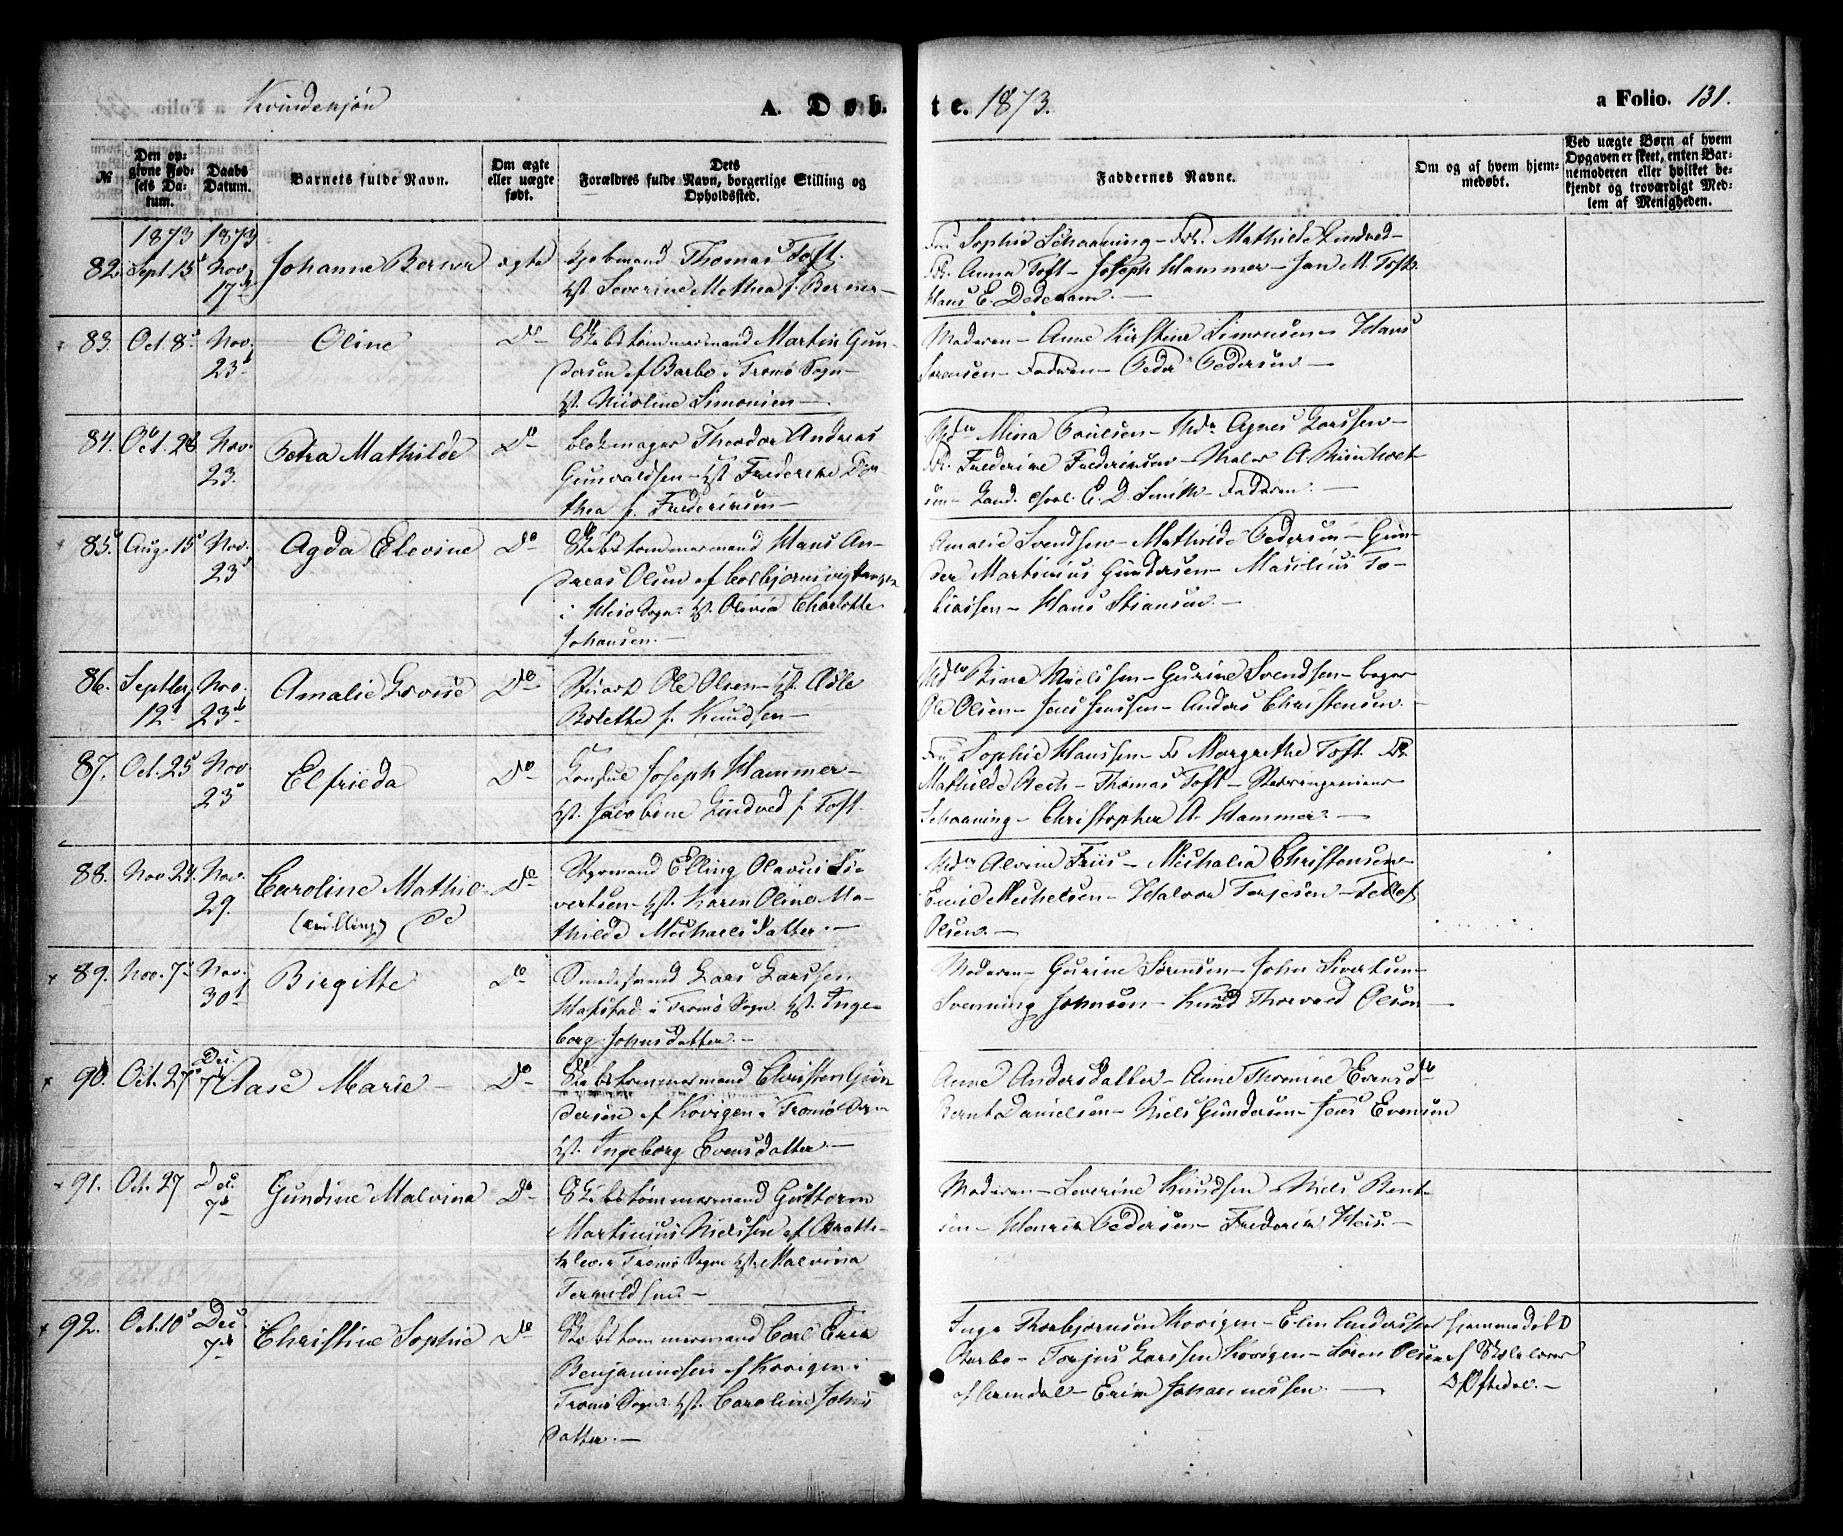 Kvindekjøn
A. Døbte. 1873.
a Folio. 131.
№
Den opgivne Fødsels Datum.
Daabs Datum.
Barnets fulde Navn.
Om ægte eller uægte født.
Dets Forældres fulde Navn, borgerlige Stilling og Opholdssted.
Faddernes Navne.
Om og af hvem hjemmedøbt.
Ved uægte Børn af hvem Opgaven er skeet, enten Barnemoderen eller hvilket bekjendt og troværdigt Medlem af Menigheden.
1873 1873
82. Sept. 15 Nov. 17 Johanne Berner ægte
Kjøbmand Thomas Toft.
Severine Mathea f. Berner
Fru Sophie Schaaning - Fr. Mathilde Lindved
Fr. Anna Toft - Joseph Hammer - Jan M. Toft
Hans E. Dedekam.
83. Oct. 8 Nov. 23 Oline Do
tømmermand Martin Gundersen af Barbo i Tromø Sogn
Nicoline Simonsen
Moderen - Anne Kirstine Simonsen Hans
Sørensen - Faderen - Peder Pedersen
84. Oct. 28 Nov. 23. Petra Mathilde Do
Blokmager Theodor Andreas
Gunvaldsen - Frederikke Dorthea f. Frederiksen
Mina Poulsen - Agnes Larssen
Fr. Frederikke Frederiksen - Maler A. Reinholtsen - Cand. theol. E. D. Smith - Faderen.
85. Aug. 15 Nov. 23 Agda Elevine Do
tømmermand Hans Andreas Olsen af Colbjørnsvigtangen
i Hisø Sogn. Olivia Charlotte
Johansen.
Amalie Svendsen - Mathilde Pedersen - Gunder Martinius Gundersen - Masilius Tobiassen - Hans Stiansen.
86. Septbr. 12 Nov. 23 Amalie Lovise Do
Stuart Ole Olsen - Adle
Bolette f. Knudsen
Stine Nielssen - Gurine Svendsen - bager
Ole Olsen - Jens Jenssen - Anders Christensen.
87. Oct. 25 Nov. 23 Elfrieda Do
Consul Joseph Hammer
Jacobine Lindved f. Toft.
Fru Sophie Hanssen - Fr Margrethe Toft. Fr.
Mathilde Bech - Thomas Toft - Havneingenieur
Schaaning - Christopher A. Hammer.
88. Nov. 24. Nov. 29. Caroline Mathilde Do
(tvilling)
Styrmand Elling Olavus Sivertsen - Karen Oline Mathilde Michaelsdatter.
Alvine Friis - Michalia Christensen
Emil Michelsen - Halvor Terjesen - Tellef
Olsen.
89. Nov. 7 Nov. 30 Birgitte Do
Lars Larssen
i Tromø Sogn. Ingeborg Johnsdatter.
Moderen - Gurine Sørensen - John Sivertsen
Svenning Johnsen - Knud Thorvald Olsen
90. Oct. 27 Dec. 7 Aase Marie Do
tømmermand Christen Gundersen af Kovigen i Tromø Sogn
Ingeborg Evensdatter.
Anne Andersdatter - Anne Thomine Evensdr
Bernt Danielsen - Niels Gundersen - Jens Evensen
91. Oct. 27 Dec. 7 Gundine Malvina Do
tømmermand Guttorm
Martinius Nielssen af Brattekleven i Tromø Sogn Malvina
Terkildsen
Moderen - Severine Knudsen - Niels Bentsen - Henrik Pedersen - Frederik Heis.
92. Oct. 10 Dec. 7 Christine Sophie Do
tømmermand Carl Erik
Benjaminssen af Kovigen i
Tromø Sogn. Caroline Johnsdatter.
Inge Thorbjørnsen Kovigen - Elen Anderssen
Barbo - Terjus Larssen Kovigen - Søren Olsen
af Arendal - Erik Johannessen.
hjemmedøbt
af Skolelærer
Oftedal.